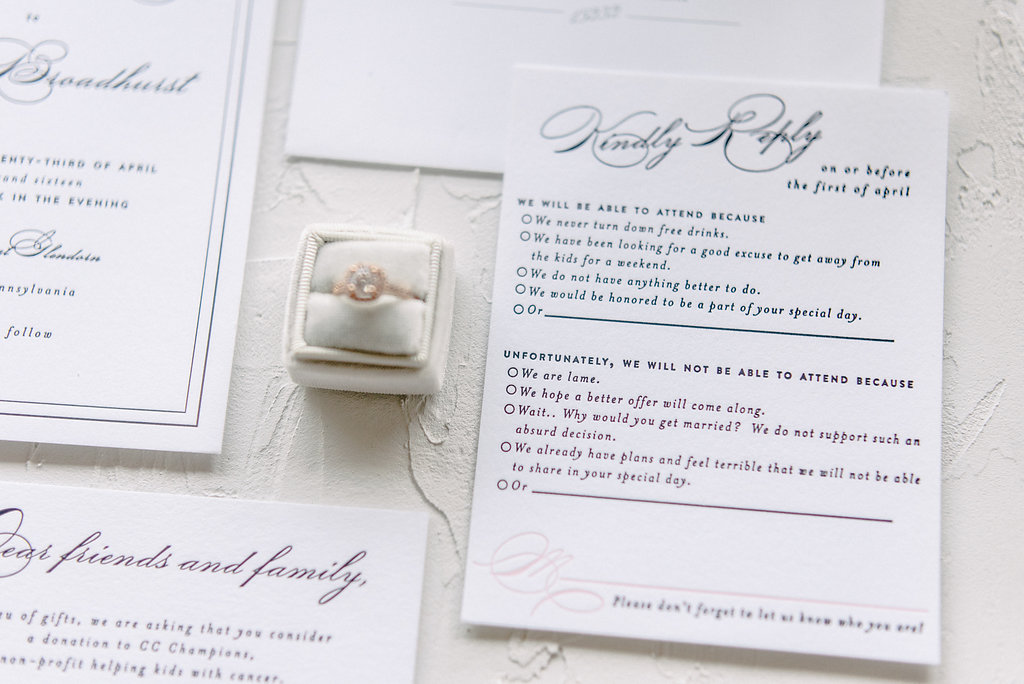 to
Broadhurst
ENTY-THIRD OF APRIL
and sixteen
K IN THE EVENING
Glendorn
nnsylvania
follow
Kindly Reply
on or before
the first of april
WE WILL BE ABLE TO ATTEND BECAUSE
We never turn down free drinks.
We have been looking for a good excuse to get away from
the kids for a weekend.
We do not have anything better to do.
We would be honored to be a part of your special day.
Or
UNFORTUNATELY, WE WILL NOT BE ABLE TO ATTEND BECAUSE
We are lame.
We hope a better offer will come along.
Wait.. Why would you get married? We do not support such an
absurd decision.
We already have plans and feel terrible that we will not be able
to share in your special day.
Or
M
Please don't forget to let us know who you are!
ear friends and family,
eu of gifts, we are asking that you consider
a donation to CC Champions,
non-profit helping kids with cancer.